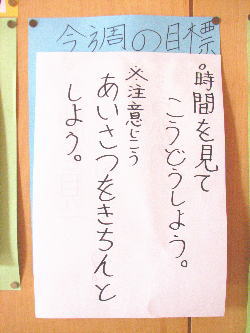 今週の目標
。時間を見て
こうどうしよう。
※注意じこう
あいさつをきちんと
しよう。